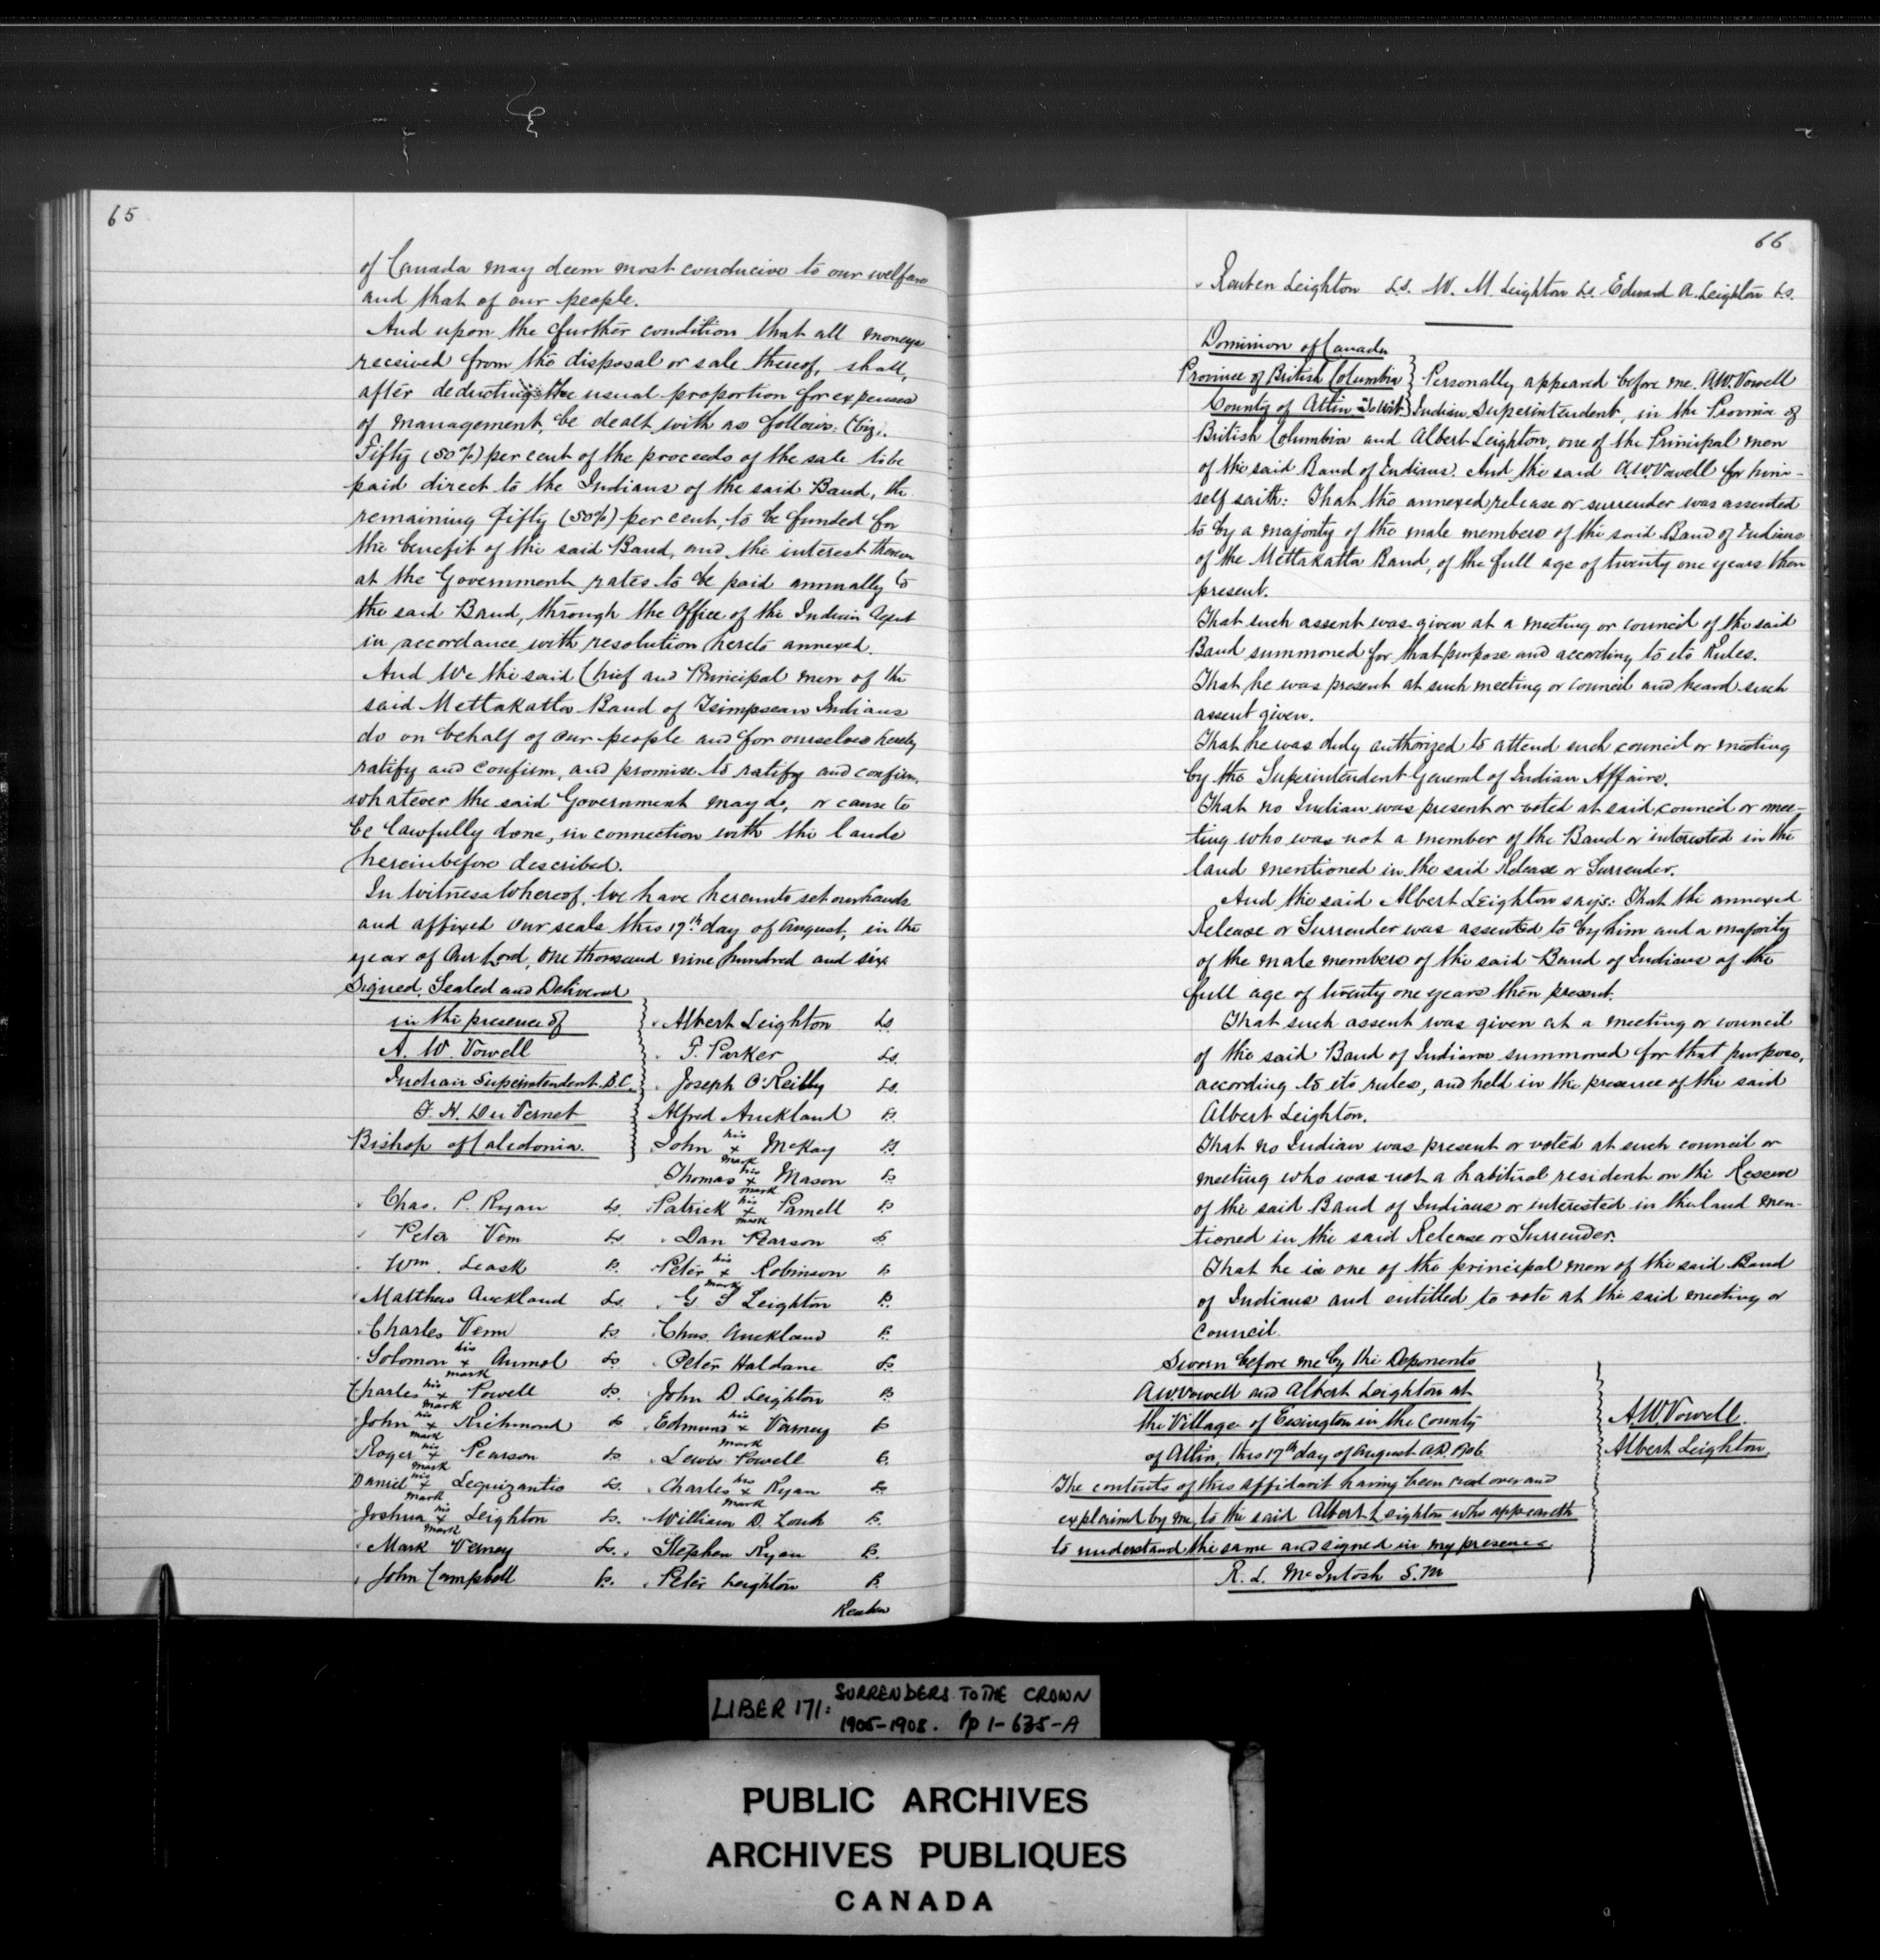 65
of Canada may deem most conducive to our welfare
and that of our people.
And upon the further condition that all moneys
received from the disposal or sale thereof, shall,
after deducting the usual proportion for expenses
of management, be dealt with as follows: Viz:.
Fifty (50%) per cent of the proceeds of the sale to be
paid direct to the Indians of the said Band, the
remaining fifty (50%) per cent, to be funded for
the benefit of the said Band, and the interest thereon
at the Government rates to be paid annually to
the said Band, through the Office of the Indian Agent
in accordance with resolution hereto annexed.
And We the said Chief and Principal men of the
said Mettakatta Band of Tsimpsean Indians
do on behalf of our people and for ourselves hereby
ratify and confirm, and promise to ratify and confirm,
whatever the said Government may do, or cause to
be lawfully done, in connection with the lands
hereinbefore described.
In Witness Whereof, We have hereunto set our hands
and affixed our seals this 17th day of August, in the
year of Our Lord, One thousand nine hundred and six
Signed, Sealed and Delivered
in the presence of Albert Leighton Ls.
A. W. Vowell T. Parker Ls.
Indian Superintendent B.C. Joseph O'Reilly Ls.
F. H. Du Vernet Alfred Auckland Ls.
Bishop of Caledonia. John his x mark McKay Ls.
Thomas his x mark Mason Ls
Chas. P. Ryan Ls. Patrick his x mark Parnell Ls
Peter Venn Ls Dan Pearson Ls.
Wm. Leask Ls. Peter his x mark Robinson Ls
Matthew Auckland Ls. G S Leighton Ls.
Charles Venn Ls Chas. Auckland Ls.
Solomon his x mark Ls Peter Haldane Ls
Charles his x mark Powell Ls. John D. Leighton Ls
John his x mark Richmond Ls Edmund his x mark Varney Ls
Roger his x mark Pearson Ls. Lewis Powell Ls.
Daniel his x mark Ls. Charles his x mark Ryan Ls
Joshua his x mark Leighton Ls. William D. Ls.
Mark Verney Ls. Stephen Ryan Ls.
John Campbell Ls. Peter Leighton Ls.
Reuben
66
Reuben Leighton Ls. W. M. Leighton Ls. Edward A. Leighton Ls.
Dominion of Canada
Province of British Columbia } Personally appeared before me. A.W. Vowell
County of Atlin To Wit } Indian Superintendent, in the Province of
British Columbia and Albert Leighton, one of the Principal men
of the said Band of Indians. And the said A.W. Vowell for him-
self saith: That the annexed release or surrender was assented
to by a majority of the male members of the said Band of Indians
of the Mettakatta Band, of the full age of twenty one years then
present.
That such assent was given at a meeting or council of the said
Band summoned for that purpose and according to its Rules.
That he was present at such meeting or council and heard such
assent given.
That he was duly authorized to attend such council or meeting
by the Superintendent General of Indian Affairs.
That no Indian was present or voted at said council or mee-
ting who was not a member of the Band or interested in the
land mentioned in the said Release or Surrender.
And the said Albert Leighton says: That the annexed
Release or Surrender was assented to by him and a majority
of the male members of the said Band of Indians of the
full age of twenty one years then present.
That such assent was given at a meeting or council
of the said Band of Indians summoned for that purpose,
according to its rules, and held in the presence of the said
Albert Leighton.
That no Indian was present or voted at such council or
meeting who was not a habitual resident on the Reserve
of the said Band of Indians or interested in the land men-
tioned in the said Release or Surrender.
That he is one of the principal men of the said Band
of Indians and entitled to vote at the said meeting or
Council.
Sworn before me by the Deponents
A.W. Vowell and Albert Leighton at
the Village of Essington in the County A.W. Vowell.
of Atlin, this 17th day of August A.D. 1906 Albert Leighton.
The contents of this affidavit having been read over and
explained by me, to the said Albert Leighton who appeareth
to understand the same and signed in my presence.
R. L. McIntosh S.M
LIBER 171: SURRENDERS TO THE CROWN
1905-1908. Pp 1-635-A
PUBLIC ARCHIVES
ARCHIVES PUBLIQUES
CANADA